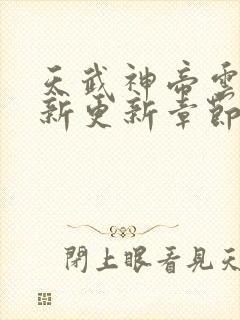 天武神帝雲
新更新章節
閉上眼看見天